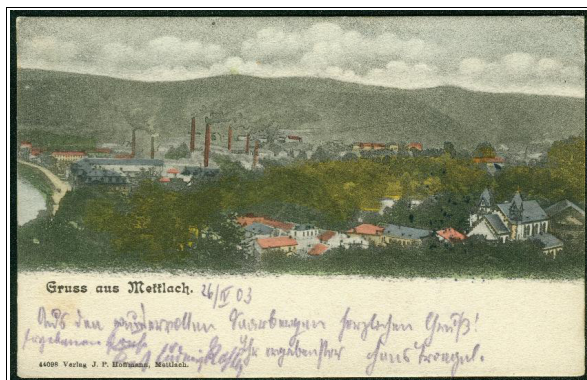 Gruss aus Mettlach. 26/IV 03
Aus den wundervollen Saarbergen herzlichen Gruß!
Ihr ergebenster Hans
44098 Verlag J. P. Hoffmann, Mettlach.